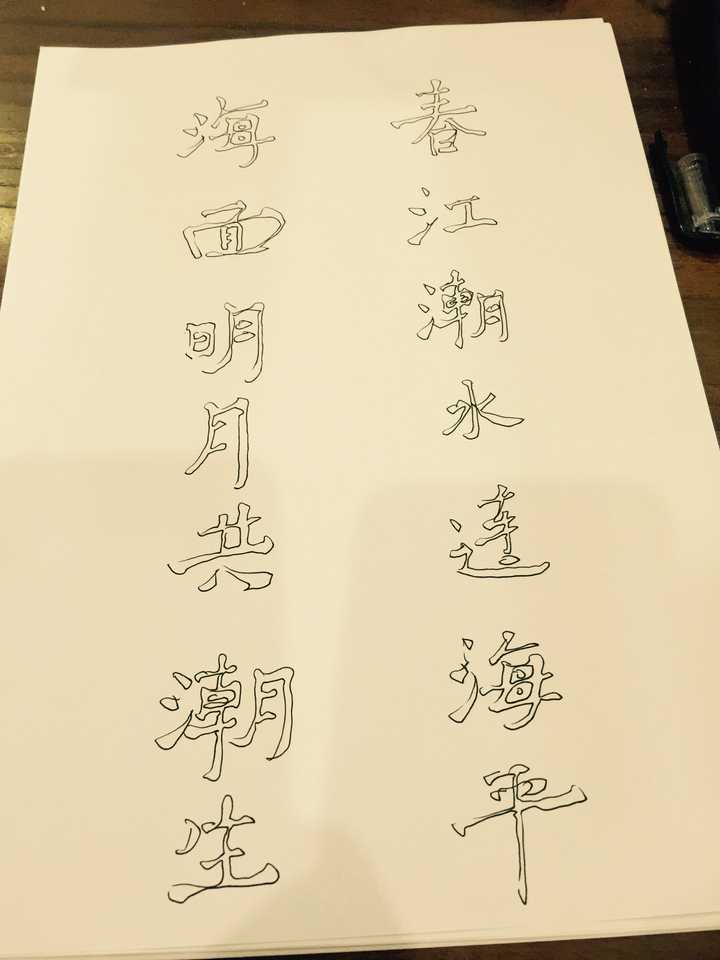 春江潮水连海平
海面明月共潮生